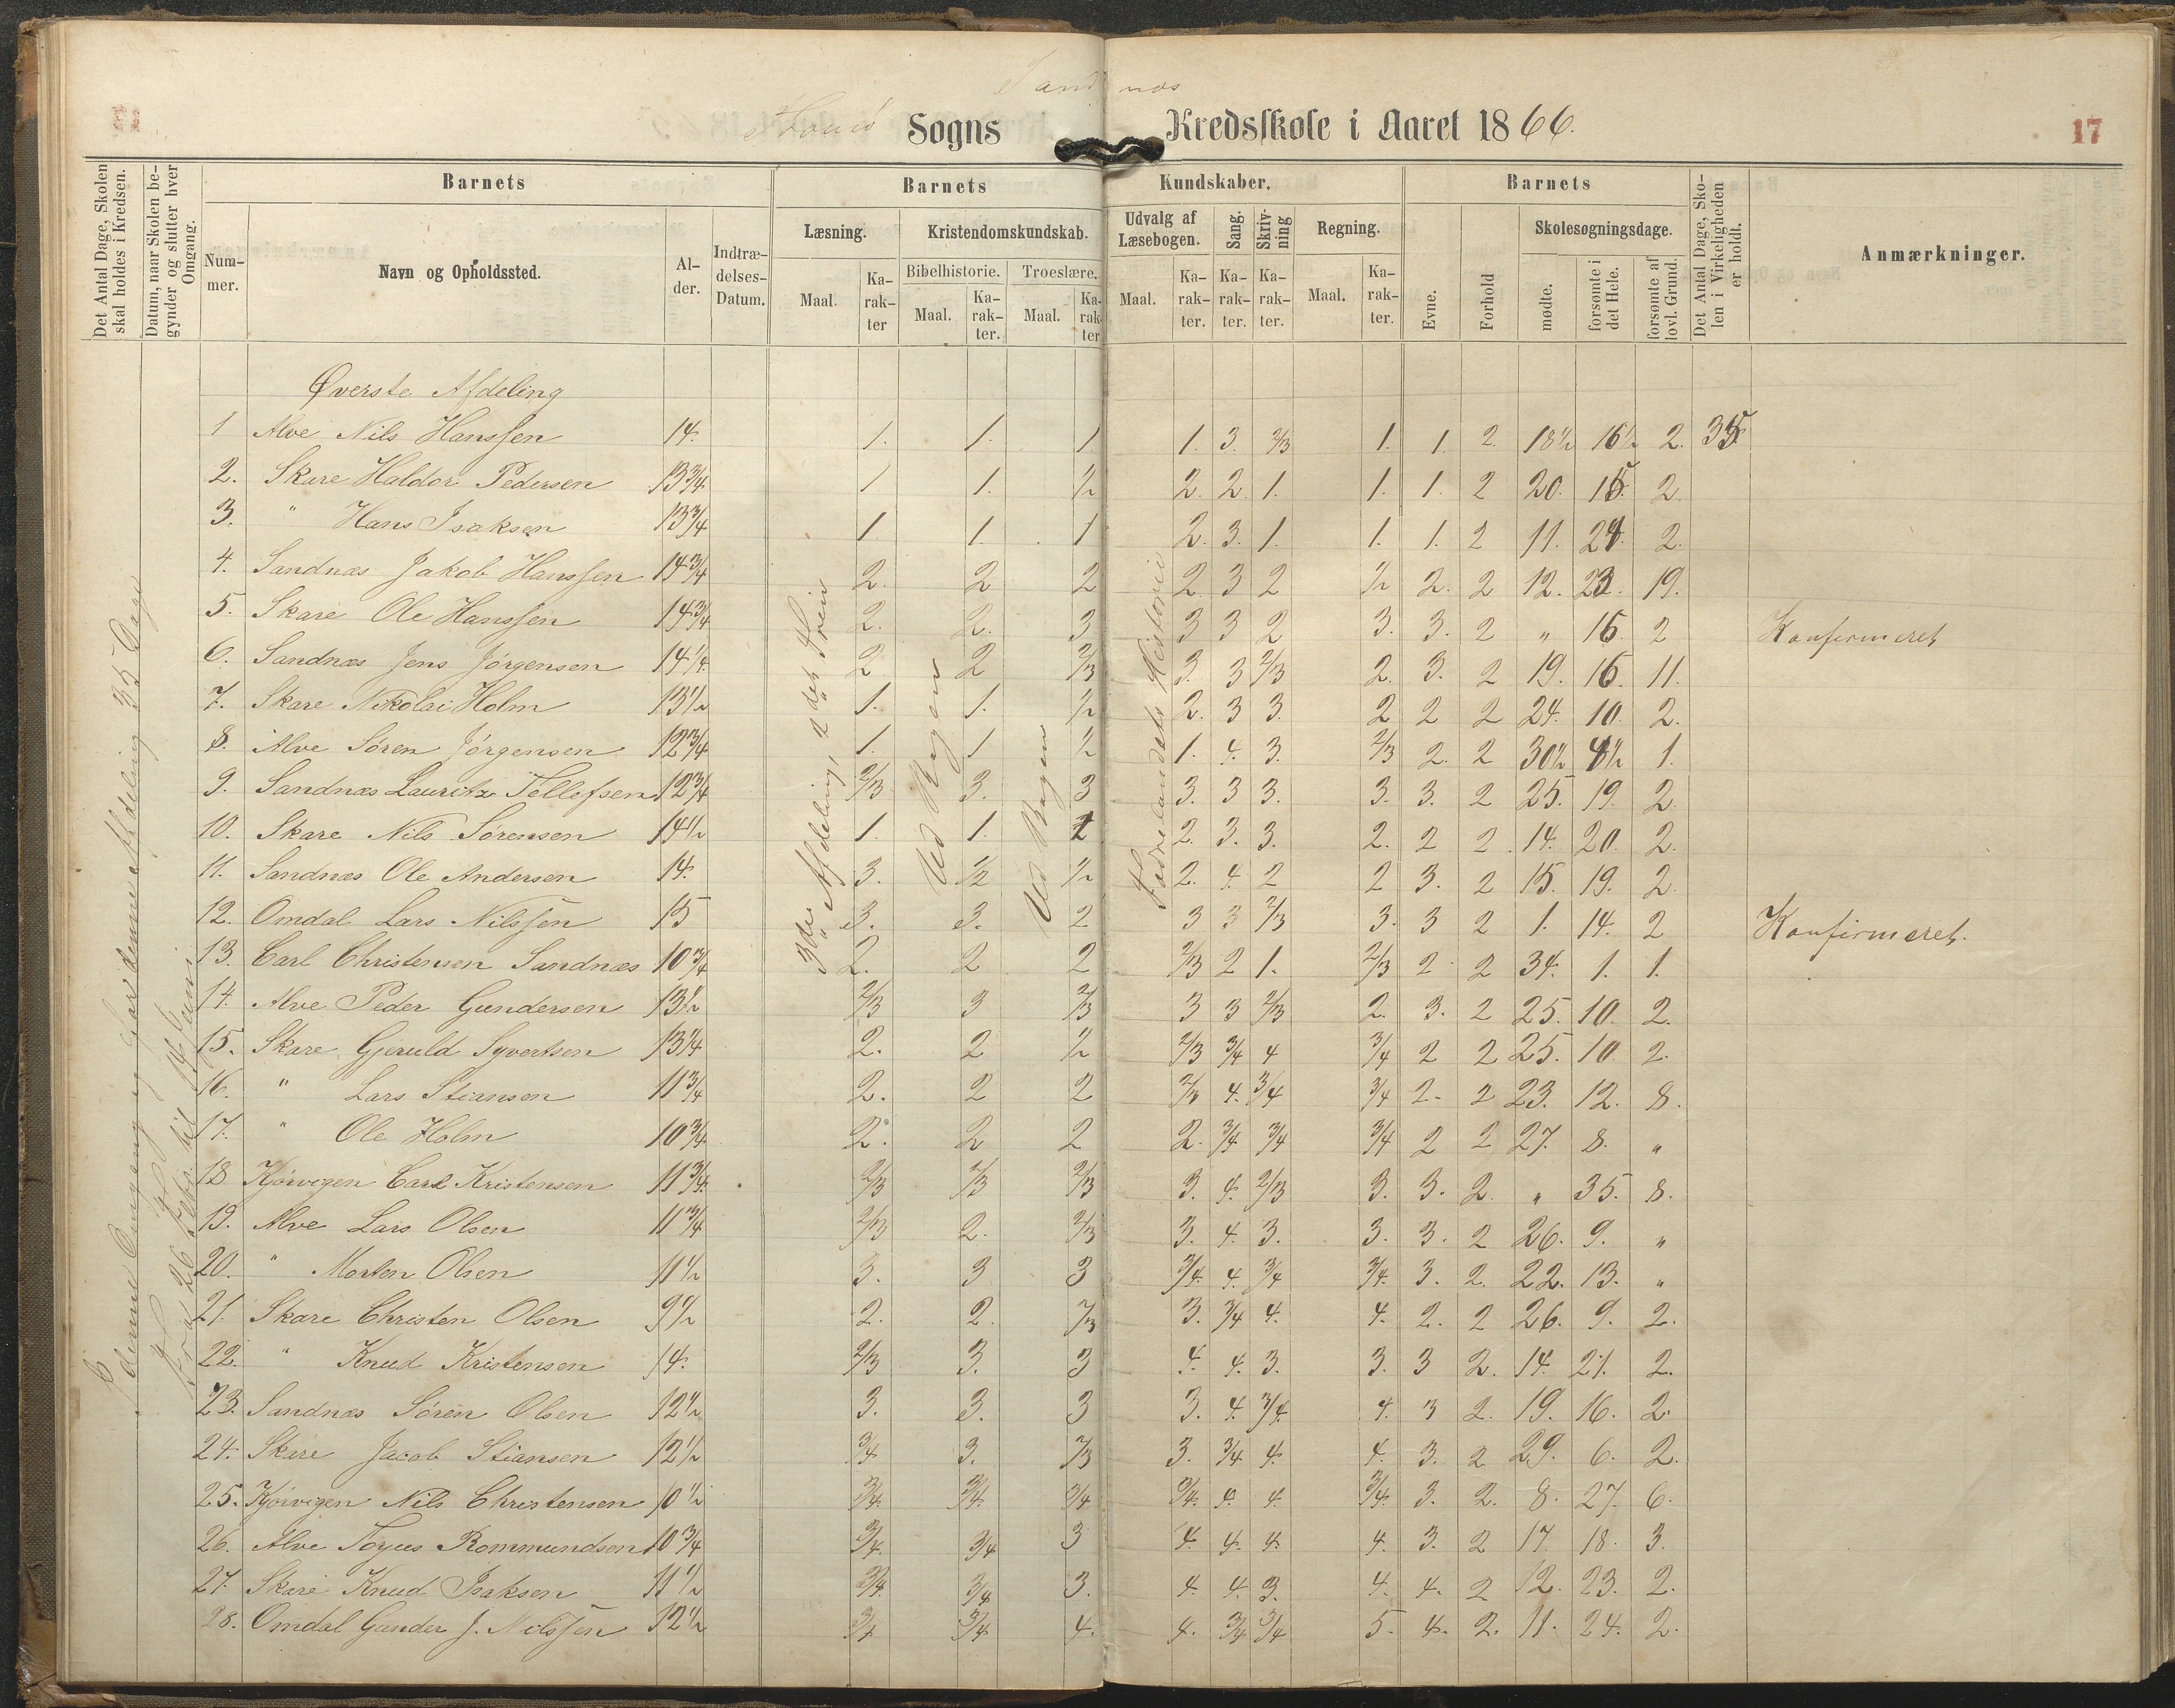 Sandnæs
Sogns Kredsskole i Aaret 1866.
17
Det Antal Dage, Skolen skal holdes i Kredsen.
Datum, naar Skolen begynder og slutter hver Omgang.
Barnets Barnets Kundskaber. Barnets
Det Antal Dage, Skolen i Virkeligheden er holdt.
Anmærkninger.
Nummer. Navn og Opholdssted. Alder. Indtrædelses-Datum.
Læsning. Kristendomskundskab. Udvalg af Læsebogen. Sang. Skrivning Regning. Evne. Forhold Skolesøgningsdage.
Bibelhistorie. Troeslære.
Maal. Karakter Maal. Karakter. Maal. Karakter Maal. Karakter. Karakter. Karakter. Maal. Karakter. mødte. forsømte i det Hele. forsømte af lovl. Grund.
denne Afdeling 35 Dage
26 Feb. til
3die Afdeling,
Ved Bogen
Ved Bogen
Fædrelandets Historie
Øverste Afdeling
1 Alve Nils Hanssen 14. 1. 1. 1 1. 3. 2/3 1. 1. 2. 18½ 16½ 2. 35
2. Skare Haldor Pedersen 13¾ 1 1. ½ 2. 2. 1. 1. 1. 2 20. 15. 2.
3. " Hans Isaksen 13¾ 1 1. 1 2. 3. 1. 1. 1. 2 11. 24. 2.
4. Sandnæs Jakob Hanssen 14¾ 2. 2 2 2. 3 2 ½ 2. 2 12. 23. 19.
5. Skare Ole Hanssen 14¾ 2. 2. 3 3 3 2 3. 3. 2 " 15. 2 Konfirmeret
6. Sandnæs Jens Jørgensen 14¼ 2. 2 2/3 3. 3 2/3 2. 3. 2 19. 16. 11.
7. Skare Nikolai Holm 13½ 1. 1. ½ 2. 3 3. 2 2 2 24. 10. 2.
8. Alve Søren Jørgensen 12¾ 1. 1 ½ 1. 4. 3. 2/3 2. 2 30½ 4½ 1.
9. Sandnæs Lauritz Tellefsen 12¾ 2/3 3. 3 3. 3 3. 3. 3. 2 25. 19. 2.
10. Skare Nils Sørensen 14½ 1. 1. 1 2. 3. 3. 2. 2 2. 14. 20. 2.
11. Sandnæs Ole Andersen 14. 3. ½ ½ 2. 4. 2 2 3. 2 15. 19. 2.
12. Omdal Lars Nilssen 15 3. 3. 2 3 3 2/3 3. 3 2 1. 14. 2 Konfirmeret.
13. Carl Christensen Sandnæs 10¾ 2. 2 2 2/3 2 1. 2/3 2 2 34. 1. 1.
14. Alve Peder Gundersen 13½ 2/3 3 2/3 3 3 2/3 2. 3. 2 25. 10. 2.
15. Skare Gjeruld Syvertsen 13¼ 2. 2 ½ 2/3 ¾ 4 ¾ 2 2 25. 10. 2.
16. " Lars Stiansen 11¾ 2. 2 2 2/3 4. ¾ ¾ 2. 2 23. 12. 8.
17. " Ole Holm 10¾ 2. 2 2 2. ¾ ¾ ¾ 2 2 27. 8. "
18 Kjørvigen Carl Kristensen 11¾ 2/3 2/3 2/3 3. 4. 2/3 3. 3. 2. " 35. 8.
19. Alve Lars Olsen 11¾ 2/3 2. 2/3 3. 4. 3. 3. 3. 2 26. 9. "
20. " Morten Olsen 11½ 3. 3 3 ¾ 4. ¾ ¾ 3. 2. 22. 13. "
21. Skare Christen Olsen 9½ 2. 2. 2/3 3. ¾ 4. 4. 2. 2 26. 9. 2.
22. " Knud Kristensen 14. 2/3 3. 3 4. 4. 3. 3. 3 2. 14. 21. 2.
23. Sandnæs Søren Olsen 12½ 3. 3. 3 3. 4. ¾ 4. 3 2. 19. 16. 2.
24. Skare Jacob Stiansen 12½ ¾ 3. 2/3 3. ¾ 4. 4. 3. 2 29. 6. 2.
25. Kjørvigen Nils Christensen 10½ ¾ ¾ ¾ ¾ 4. 4. ¾ 3. 2. 8. 27. 6.
26. Alve Torjus Rommundsen 10¾ ¾ ¾ 3 4. 4. 4. 4. 3. 2 17. 18. 3.
27. Skare Knud Isaksen 11½ ¾ ¾ 3. 4. 4. 3. 4. 4. 2 12. 23. 2.
28. Omdal Gunder J. Nilssen 12½ ¾ ¾ 4. 4. ¾ ¾ 5. 4. 2. 11. 24. 2.